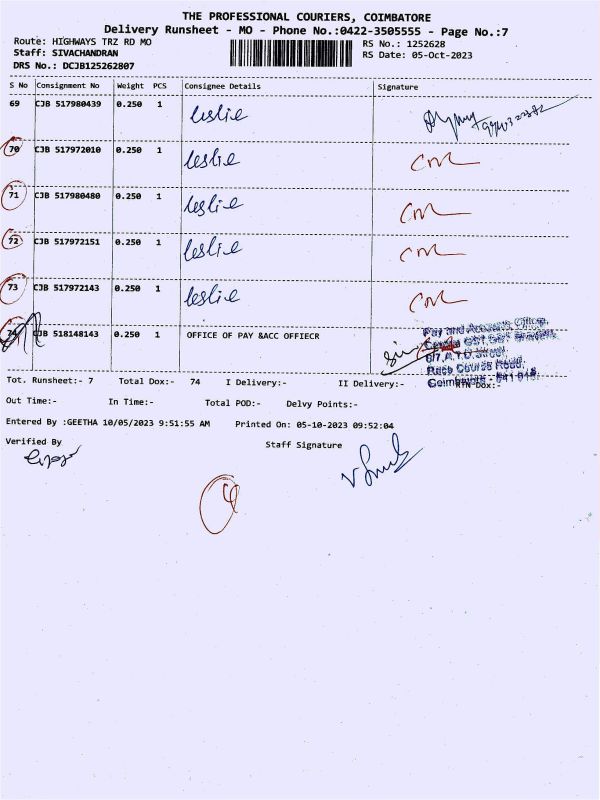 THE PROFESSIONAL COURIERS, COIMBATORE
Delivery Runsheet - MO - Phone No.:0422-3505555 - Page No.:7
Route: HIGHWAYS TRZ RD MO RS No.: 1252628
Staff: SIVACHANDRAN RS Date: 05-Oct-2023
DRS No.: DCJB125262807
S No Consignment No Weight PCS Consignee Details Signature
69 CJB 517980439 0.250 1 leslie
70 CJB 517972010 0.250 1 leslie
71 CJB 517980480 0.250 1 leslie
72 CJB 517972151 0.250 1 leslie
73 CJB 517972143 0.250 1 leslie
CJB 518148143 0.250 1 OFFICE OF PAY &ACC OFFIECR
Pay and Accounts Office,
Race Course Road,
Tot. Runsheet:- 7 Total Dox:- 74 I Delivery:- II Delivery:- RTN Dox:-
Out Time:- In Time:- Total POD:- Delvy Points:-
Entered By :GEETHA 10/05/2023 9:51:55 AM Printed On: 05-10-2023 09:52:04
Verified By Staff Signature